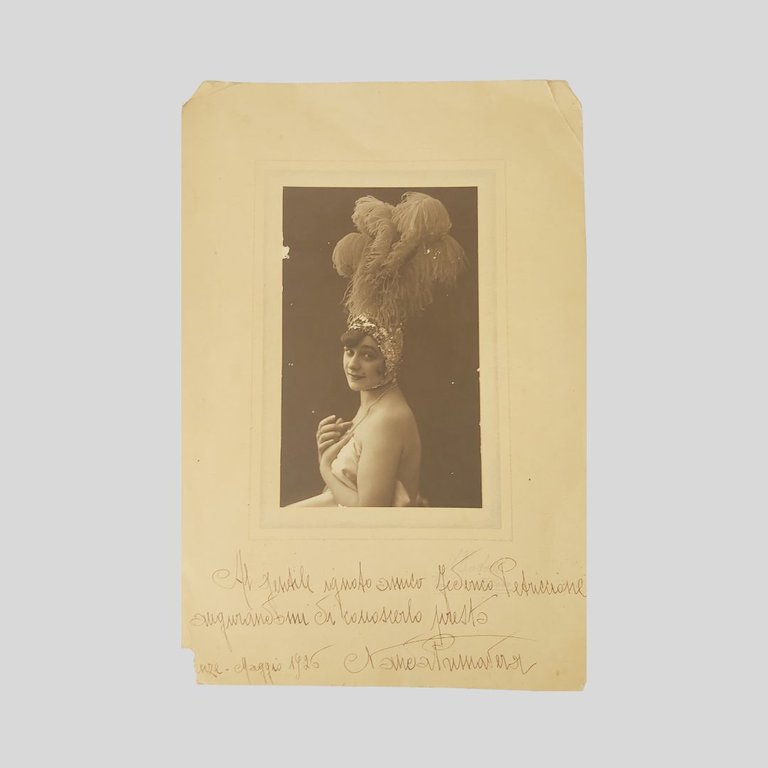 Al gentile ignoto amico Federico Petriccione
augurandomi di conoscerlo presto
enze - Maggio 1926 Nanda Primavera